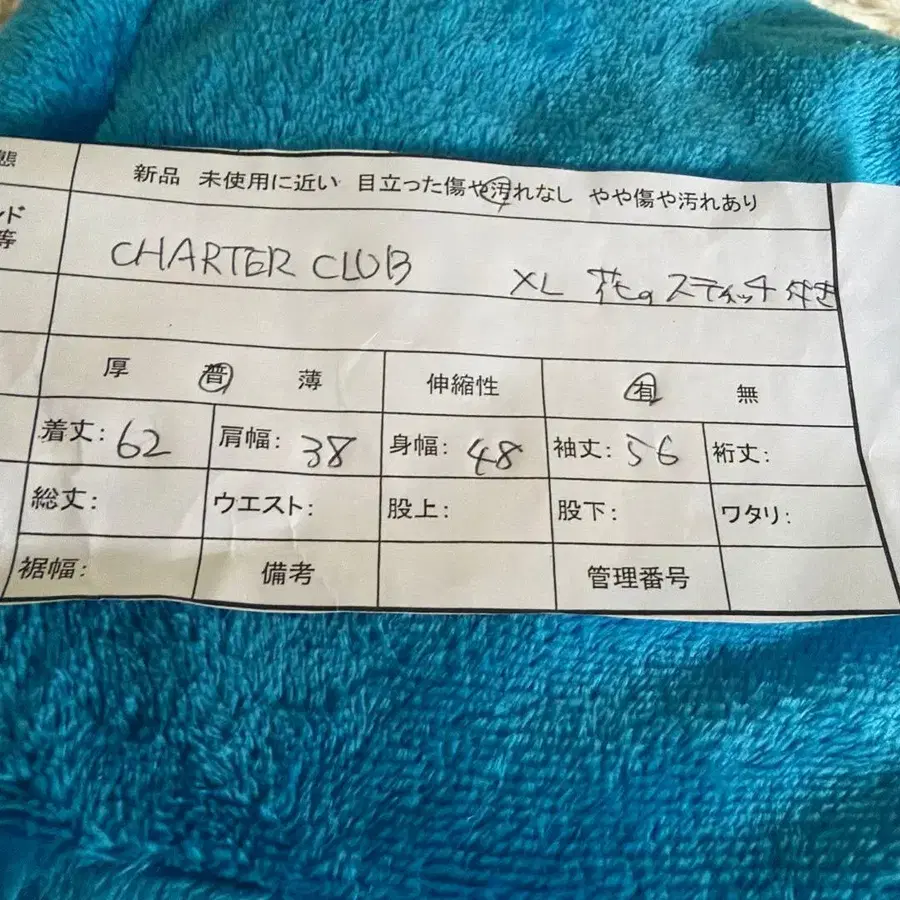 態 新品 未使用に近い 目立った傷や汚れなし やや傷や汚れあり
ンド
等
CHARTER CLUB XL 花のスティッチ付き
厚 普 薄 伸縮性 有 無
着丈: 62 肩幅: 38 身幅: 48 袖丈: 56 裄丈:
総丈: ウエスト: 股上: 股下: ワタリ:
裾幅: 備考 管理番号